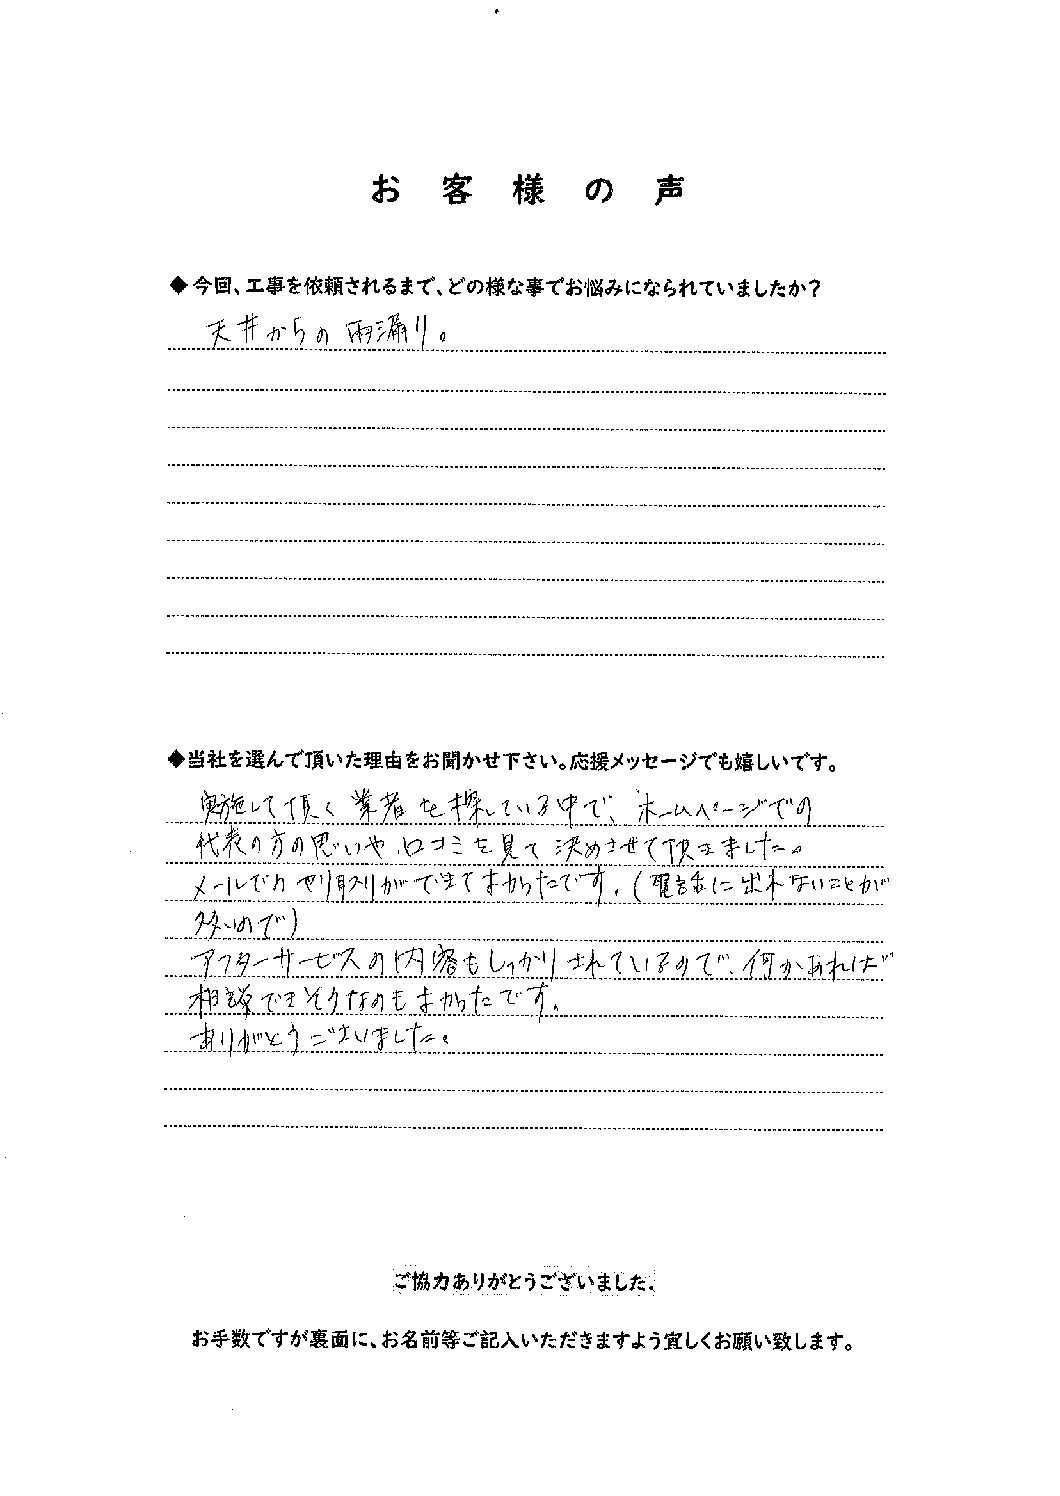 お客様の声
◆今回、工事を依頼されるまで、どの様な事でお悩みになられていましたか？
天井からの雨漏り。
◆当社を選んで頂いた理由をお聞かせ下さい。応援メッセージでも嬉しいです。
実施して頂く業者を探している中で、ホームページでの
代表の方の思いや、口コミを見て決めさせて頂きました。
メールでのやり取りができてよかったです。(電話に出れないことが
多いので)
アフターサービスの内容もしっかりされているので、何かあれば
相談できそうなのもよかったです。
ありがとうございました。
ご協力ありがとうございました。
お手数ですが裏面に、お名前等ご記入いただきますよう宜しくお願い致します。